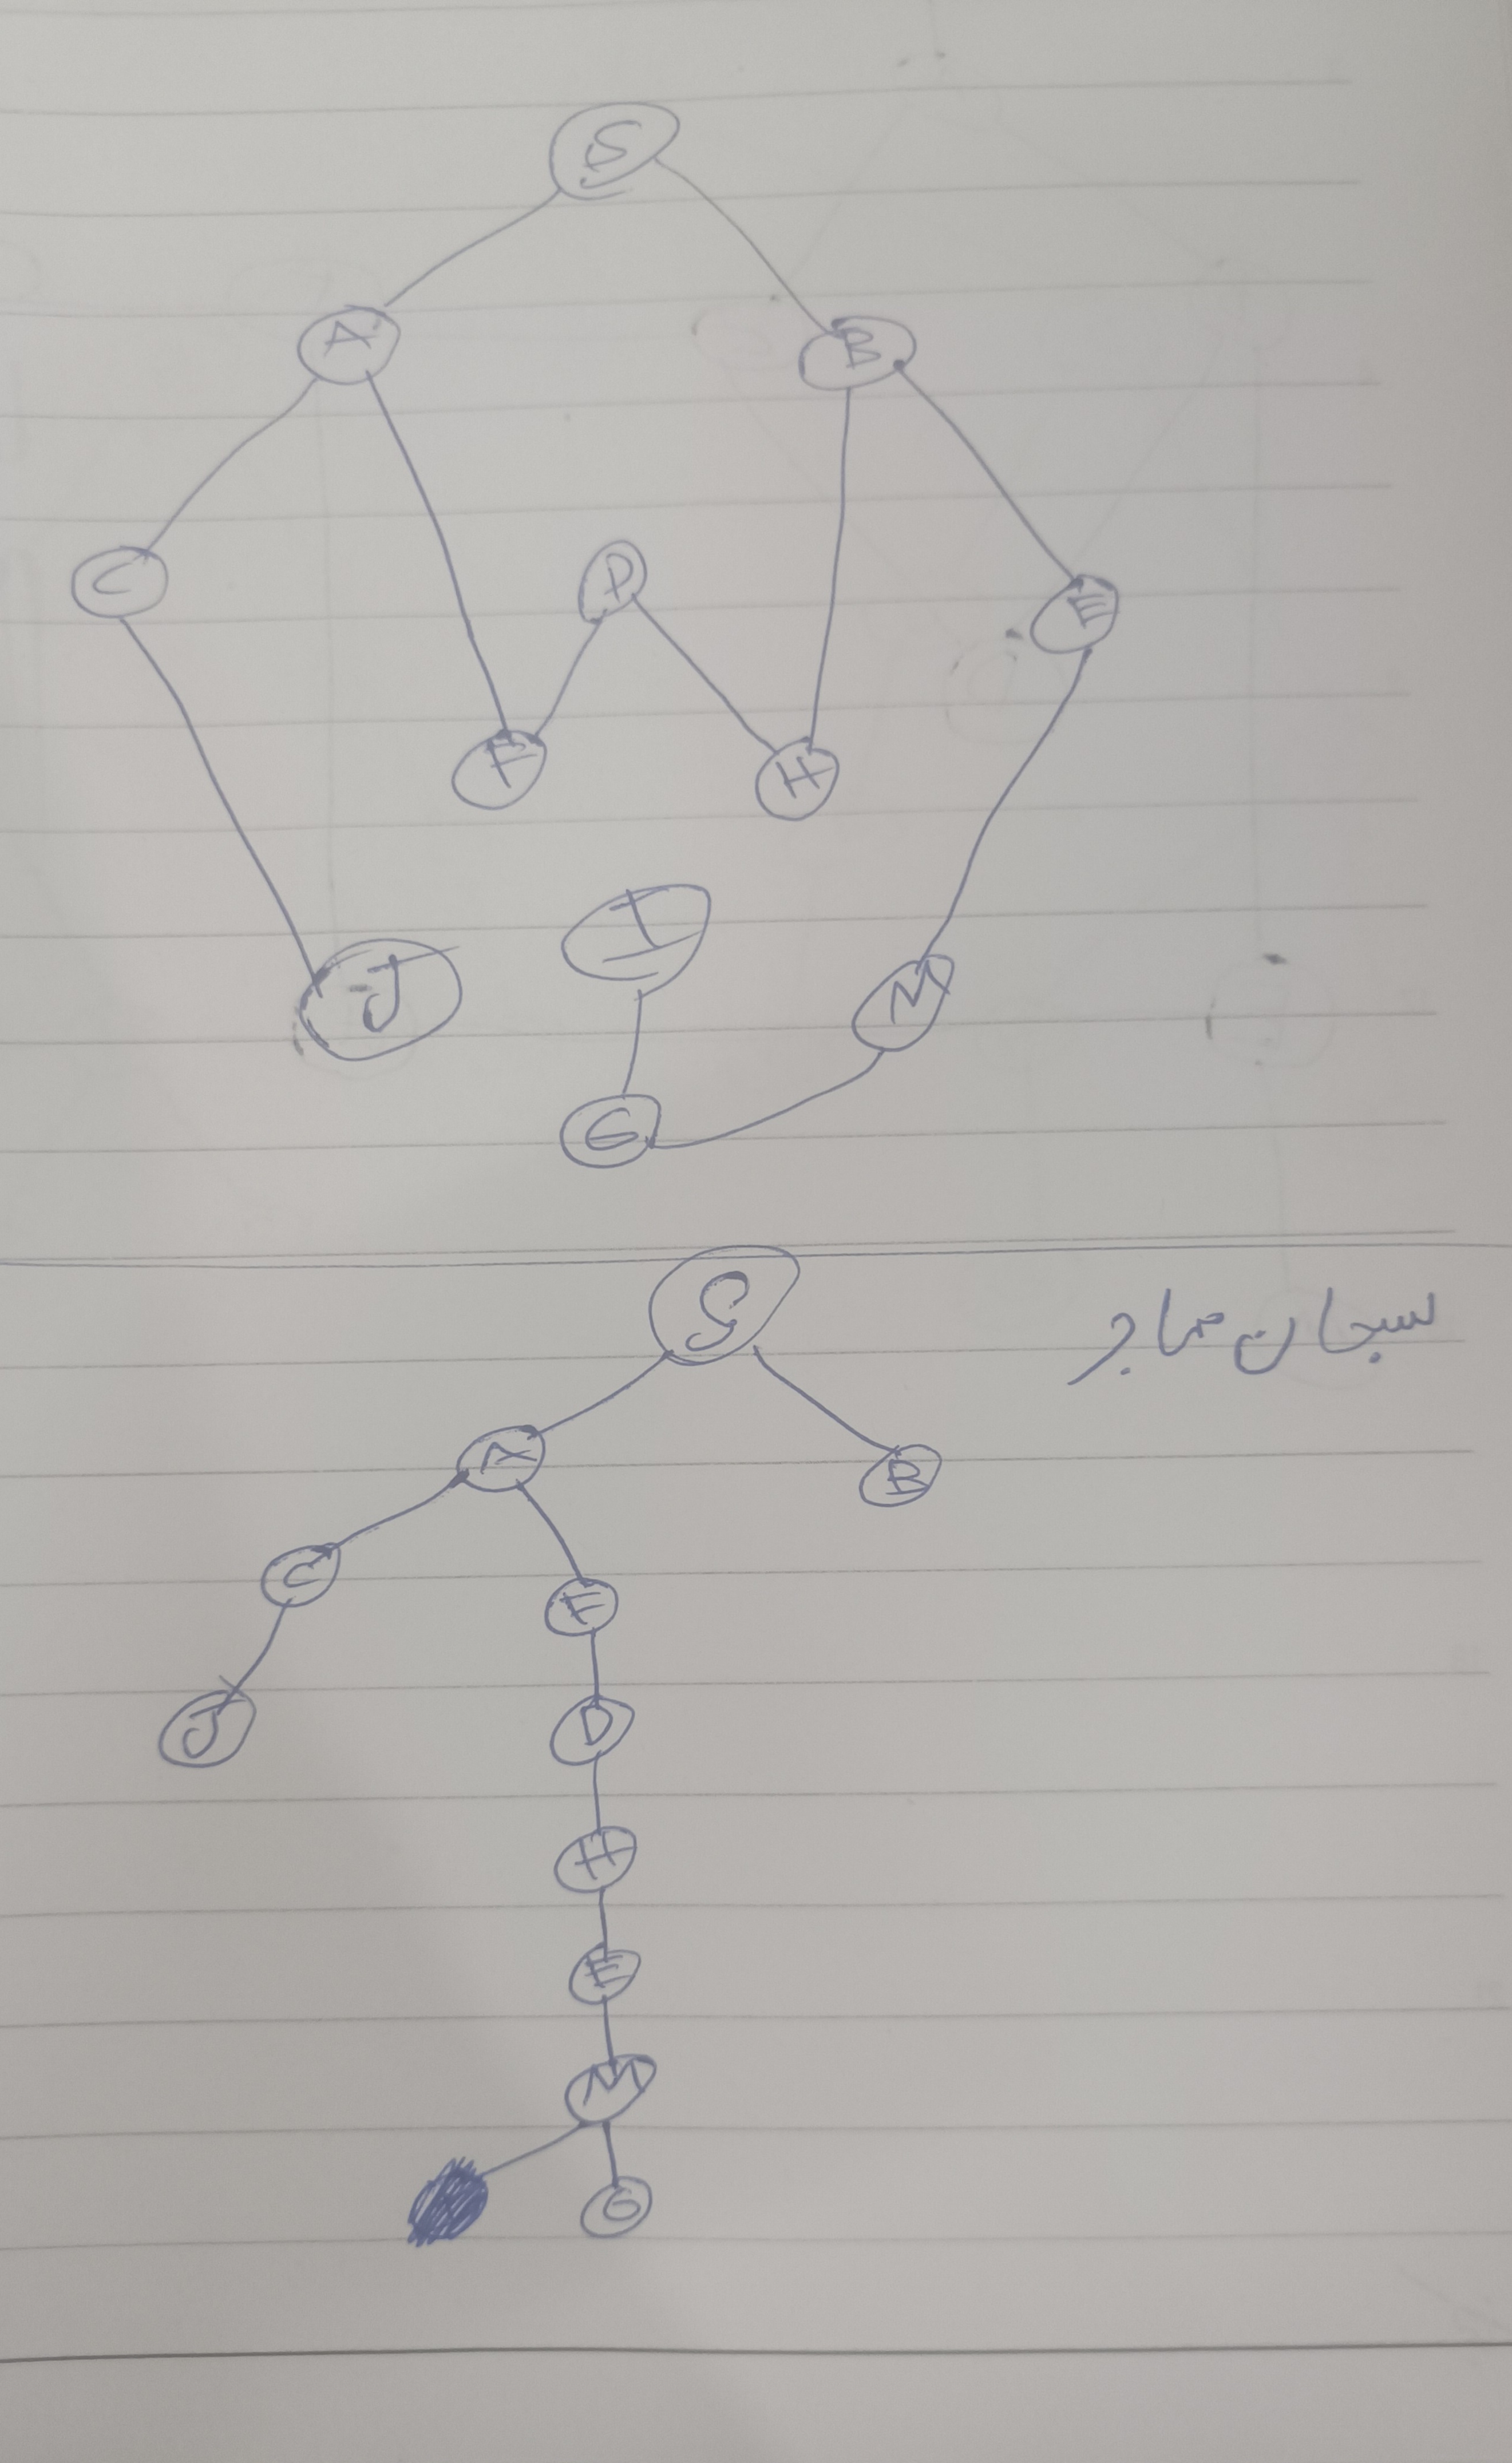 S
A B
C D E
F H
I
J M
G
S سبحان صابر
A B
C F
J D
H
E
M
G